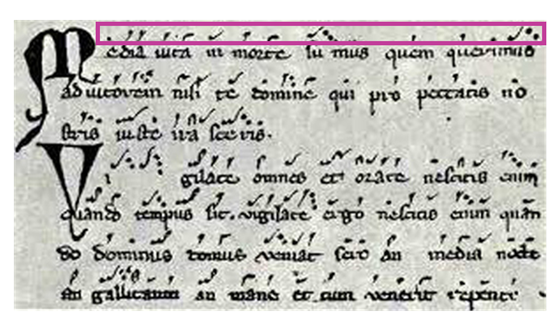 Media uita in morte su mus quem querimus
ad iutorem nisi te domine qui pro peccatis no
stris iuste irasceris.
Vi gilate omnes et orate nescitis enim
quando tempus sit. vigilate ergo nescitis enim quan
do dominus domus veniat sero an media nocte
an galli cantu an mane et cum venerit repente